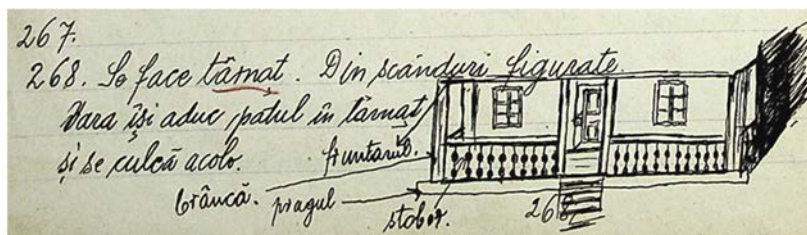 267.
268. Se face târnat. Din scânduri figurate
Vara își aduc patul în târnaț
și se culcă acolo.
fruntariŭ.
brâncă.
pragul
stobor.
268